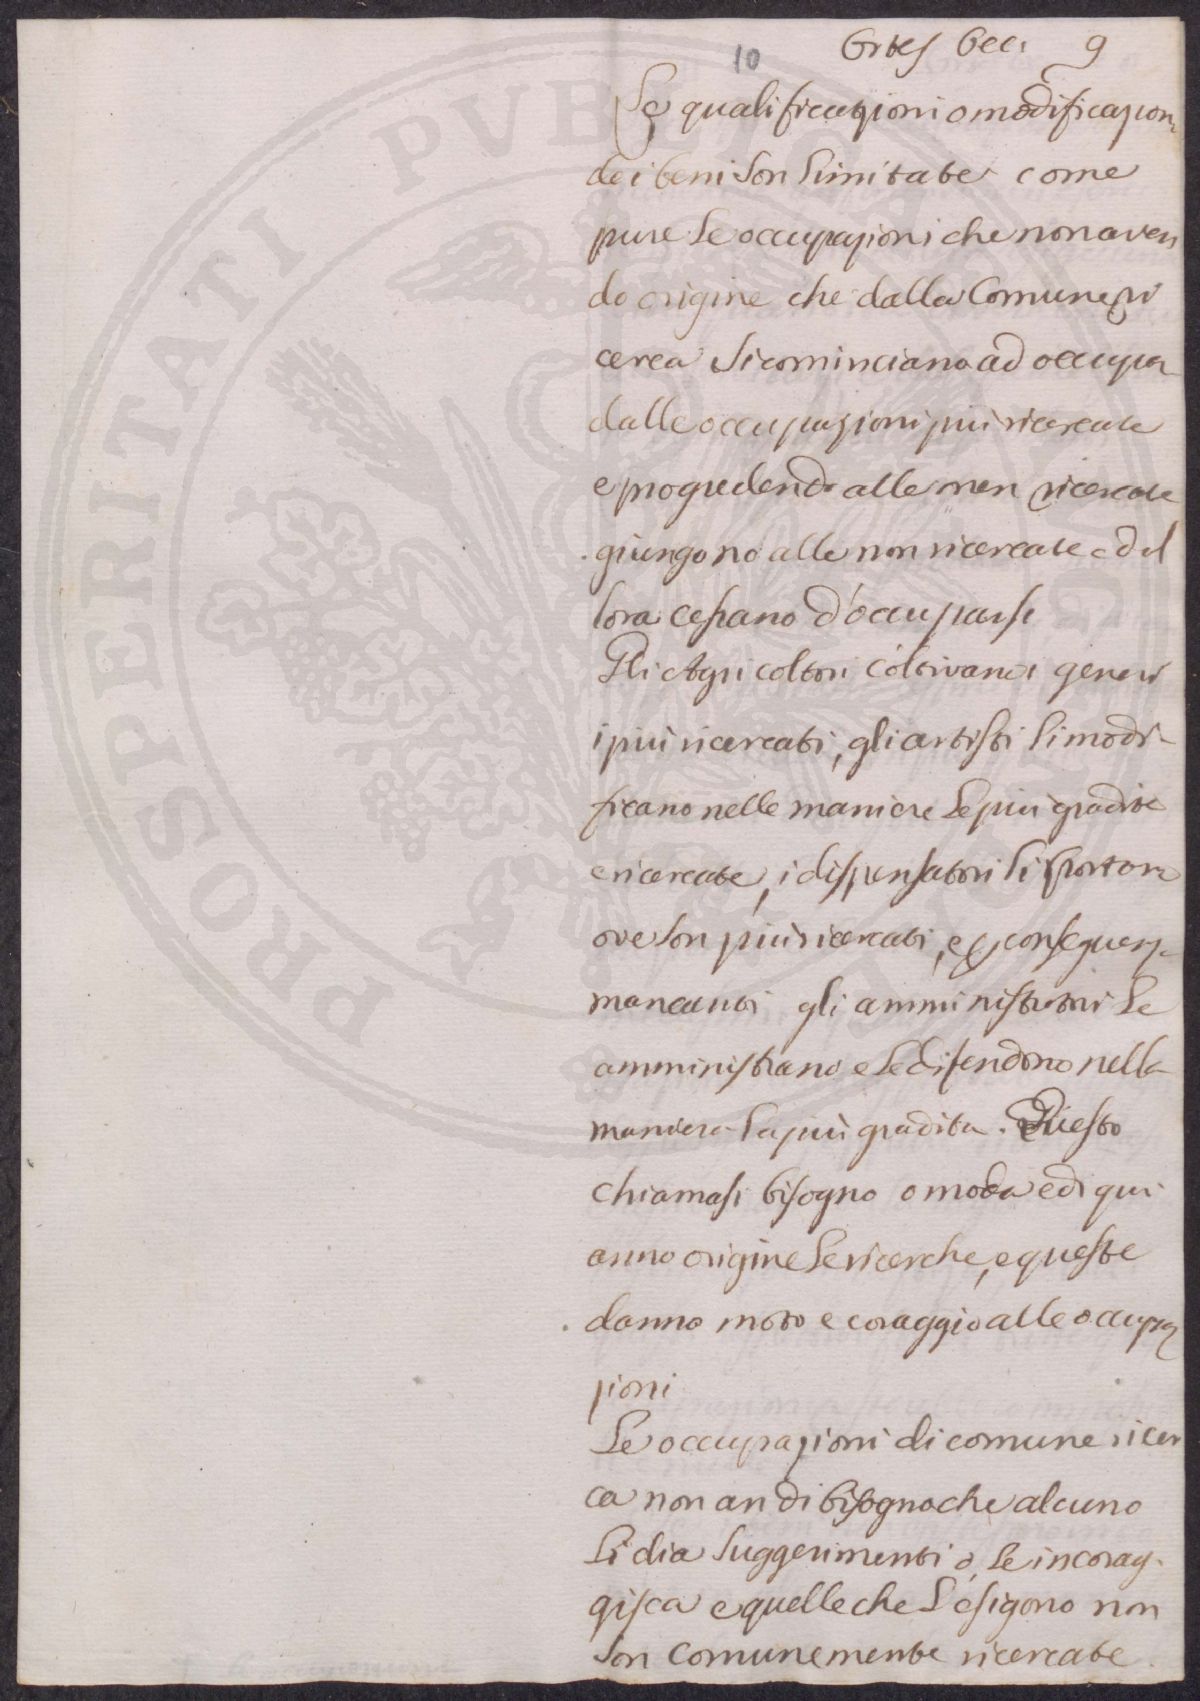 10 9
Le qualificazioni o modificazioni
dei beni son limitate come
pure le occupazioni che non aven
do origine che dalla Comune ri
cerca si cominciano ad occupar
dalle occupazioni più ricercate
e progredendo alle men ricercate
giungono alle non ricercate ed al
lora cessano d'occuparsi
Gli Agricoltori coltivano i generi
i più ricercati, gli artisti li modi-
ficano nelle maniere le più gradite
e ricercate, i dispensatori li portano
ove son più ricercati, e
mancanti gli amministratori le
amministrano e le difendono nella
maniera la più gradita. Questo
chiamasi bisogno o moda e di qui
anno origine le ricerche, e queste
danno moto e coraggio alle occupa
zioni
Le occupazioni di comune ricer
ca non an di bisogno che alcuno
li dia suggerimenti o le incorag-
gisca e quelle che l'esigono non
son comunemente ricercate.
PUBLICAE PROSPERITATI